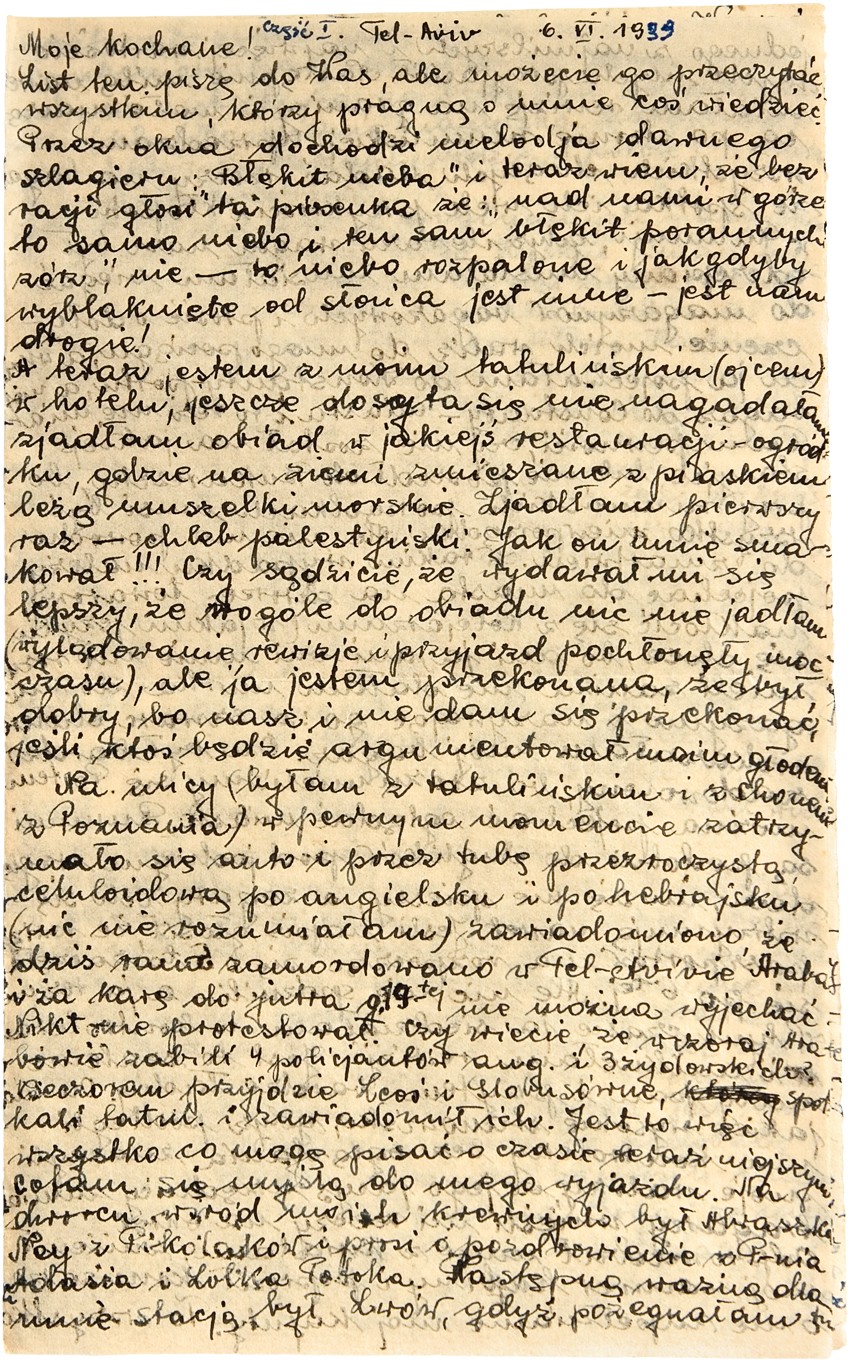 Część I. Tel-Aviv 6. VI. 1939
Moje kochane!
List ten piszę do Was, ale możecie go przeczytać
wszystkim, którzy pragną o mnie coś wiedzieć
Przez okna dochodzi melodja dawnego
szlagieru: "Błękit nieba" i teraz wiem, że bez
racji głosi ta piosenka że: "nad nami w górze
to samo niebo i ten sam błękit porannych
zórz", nie — to niebo rozpalone i jakgdyby
wyblaknięte od słońca jest inne — jest nam
drogie!
A teraz jestem z moim tatulińskim (ojcem)
w hotelu, jeszcze dosyta się nie nagadałam
zjadłam obiad w jakiejś restauracji-ogród-
ku, gdzie na ziemi zmieszane z piaskiem
leżą muszelki morskie. Zjadłam pierwszy
raz — chleb palestyński. Jak on mnie sma-
kował!!! Czy sądzicie, że wydawał mi się
lepszy, że wogóle do obiadu nic nie jadłam
(wylądowanie rewizje i przyjazd pochłonęły moc
czasu), ale ja jestem przekonana, że był
dobry, bo nasz i nie dam się przekonać,
jeśli ktoś będzie argumentował moim głodem
Na ulicy (byłam z tatulińskim i z
z Poznania) w pewnym momencie zatrzy-
mało się auto i przez tubę przezroczystą,
celuloidową po angielsku i po hebrajsku
(nic nie rozumiałam) zawiadomiono, że
dziś rano zamordowano w Tel-Avivie Araba
i za karę do jutra g. 19-tej nie można wyjechać.
Nikt nie protestował. Czy wiecie, że wczoraj Ara-
bowie zabili 4 policjantów ang. i 3 żydowskich?
Wieczorem przyjdzie Lcoś i Globusówne, spot-
kali tatul. i zawiadomił ich. Jest to więc
wszystko co mogę pisać o czasie teraźniejszym,
cofam się myślą do mego wyjazdu. Na
dworcu wśród moich krewnych był Abraszka
Ney z Pikolasków i prosi o pozdrowienie w P-nia
Adasia i Lolka Potoka. Następną ważną dla
mnie stacją był Lwów, gdyż pożegnałam